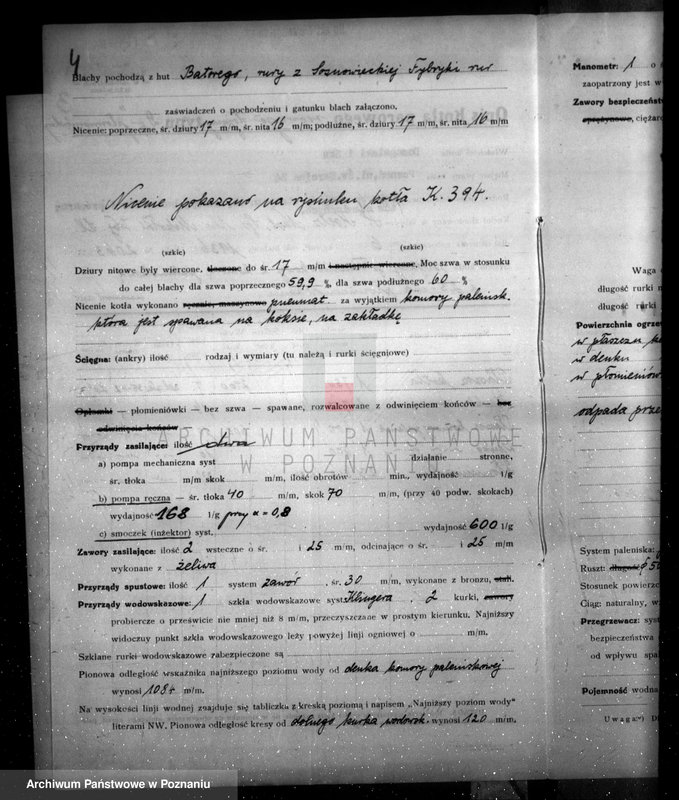 4
Blachy pochodzą z hut Batorego, rury z Sosnowieckiej Fybryki rur
zaświadczeń o pochodzeniu i gatunku blach załączono.
Nicenie: poprzeczne, śr. dziury 17 m/m, śr. nita 16 m/m; podłużne, śr. dziury 17 m/m, śr. nita 16 m/m
Nicenie pokazano na rysunku kotła K. 394.
(szkic) (szkic)
Dziury nitowe były wiercone, tłoczone do śr. 17 m/m i następnie wiercone. Moc szwa w stosunku
do całej blachy dla szwa poprzecznego 59,9 %, dla szwa podłużnego 60 %
Nicenie kotła wykonano ręcznie, maszynowo pneumat. za wyjątkiem komory palensk.
która jest spawana na koksie, na zakładkę
Ścięgna: (ankry) ilość rodzaj i wymiary (tu należą i rurki ścięgniowe)
Opłomki — płomieniówki — bez szwa — spawane, rozwalcowane z odwinięciem końców — bez
odwinięcia końców
ARCHIWUM PAŃSTWOWE
W POZNANIU
Przyrządy zasilające: ilość dwa
a) pompa mechaniczna syst. działanie stronne,
śr. tłoka m/m skok m/m, ilość obrotów min., wydajność l/g
b) pompa ręczna — śr. tłoka 40 m/m, skok 70 m/m, (przy 40 podw. skokach)
wydajność 168 l/g przy α = 0,8
c) smoczek (inżektor) syst. wydajność 600 l/g
Zawory zasilające: ilość 2 wsteczne o śr. i 25 m/m, odcinające o śr. i 25 m/m
wykonane z żeliwa
Przyrządy spustowe: ilość 1 system zawór śr. 30 m/m, wykonane z bronzu, stali.
Przyrządy wodowskazowe: 1 szkła wodowskazowe syst. Klingera. 2 kurki, zawory
probiercze o prześwicie nie mniej niż 8 m/m, przeczyszczane w prostym kierunku. Najniższy
widoczny punkt szkła wodowskazowego leży powyżej linji ogniowej o m/m.
Szklane rurki wodowskazowe zabezpieczone są
Pionowa odległość wskaźnika najniższego poziomu wody od denka komory paleniskowej
wynosi 1084 m/m.
Na wysokości linji wodnej znajduje się tabliczka z kreską poziomą i napisem „Najniższy poziom wody"
literami NW. Pionowa odległość kresy od dolnego kurka wodowsk. wynosi 120 m/m.
Manometr: 1 o s
zaopatrzony jest w
Zawory bezpieczeńst
sprężynowe, ciężar
Waga
długość rurki
długość rurki
Powierzchnia ogrze
w płaszczu
w denku
w płomieniów
odpada prze
System paleniska:
Ruszt: długość
Stosunek powierzc
Ciąg: naturalny, w
Przegrzewacz: syst
bezpieczeństwa
od wpływu spa
Pojemność wodna
Uwaga:
Archiwum Państwowe w Poznaniu